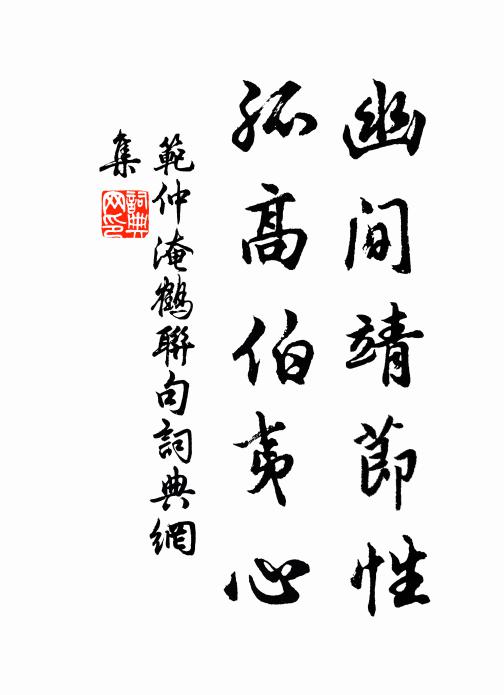 幽間靖節性
孤高伯夷心
範仲淹鶴聯句詞典網
集
詞典网印